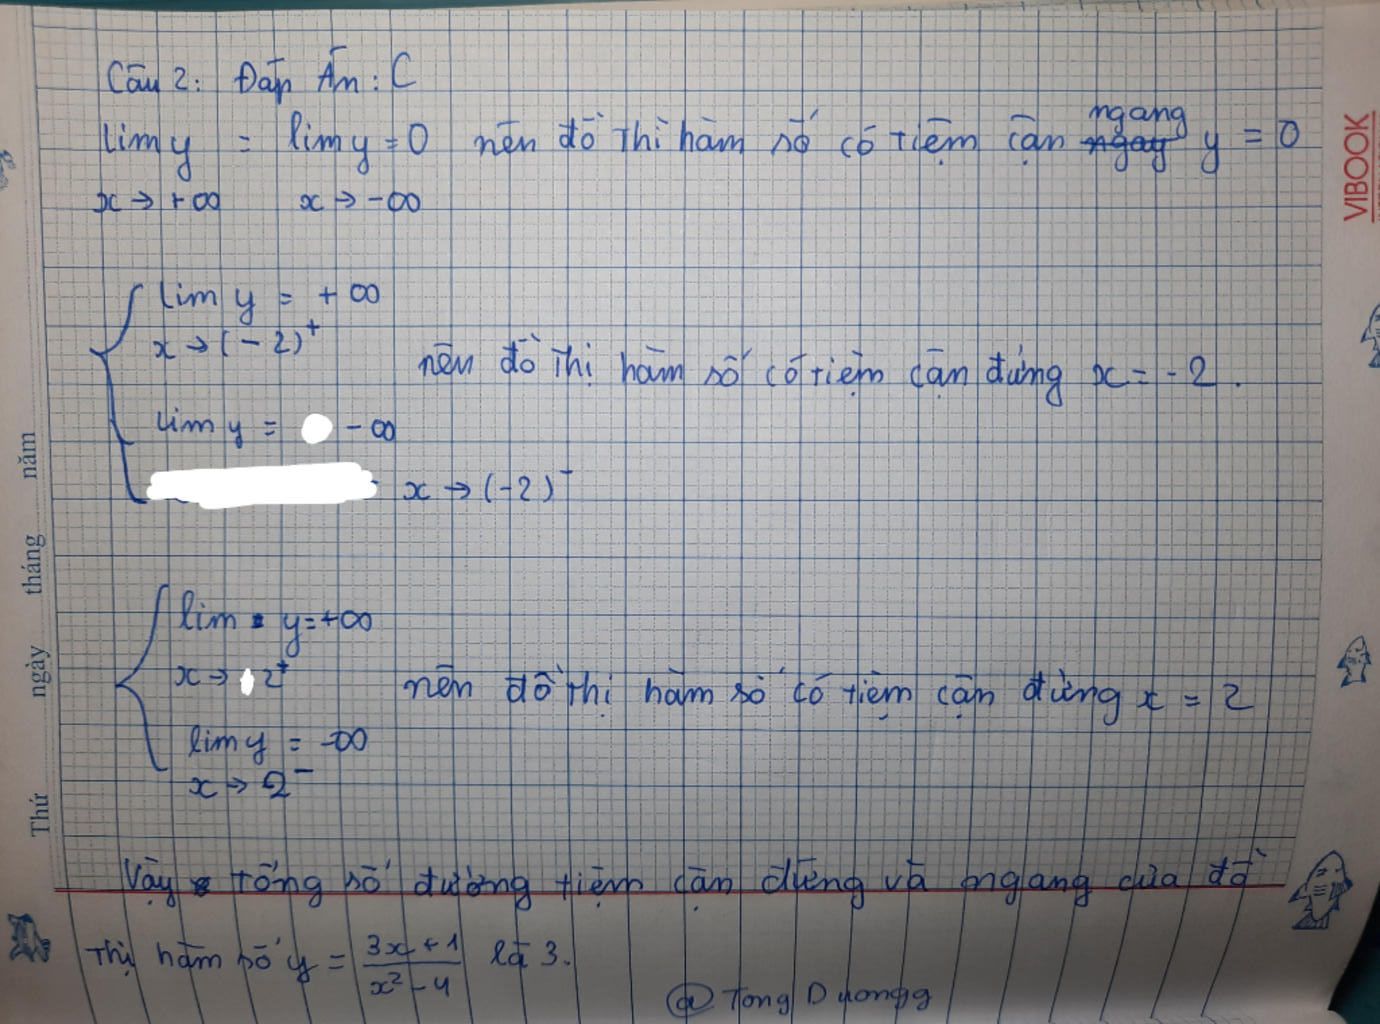 Câu 2: Đáp Án: C
lim y = lim y = 0 nên đồ thị hàm số có tiệm cận ngang y = 0
x → +∞ x → -∞
lim y = +∞
x → (-2)⁺
nên đồ thị hàm số có tiệm cận đứng x = -2.
lim y = -∞
x → (-2)⁻
lim y = +∞
x → 2⁺
nên đồ thị hàm số có tiệm cận đứng x = 2
lim y = -∞
x → 2⁻
Vậy tổng số đường tiệm cận đứng và ngang của đồ
thị hàm số y = (3x + 1)/(x² - 4) là 3.
@ Tong Duongg
Thứ ngày tháng năm
VIBOOK